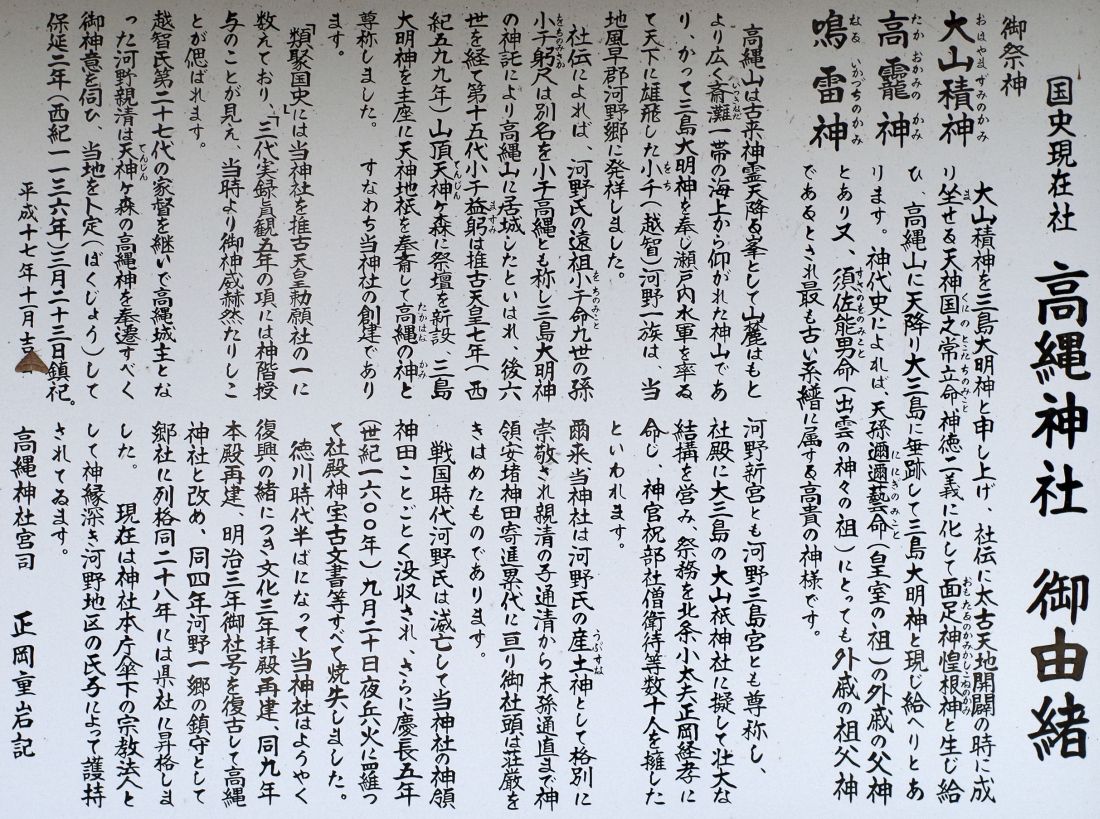 国史現在社 高縄神社 御由緒
御祭神
大山積神
高龗神
鳴雷神
大山積神を三島大明神と申し上げ、社伝に太古天地開闢の時に成
り坐せる天神国之常立命神徳二義に化して面足神惶根神と生じ給
ひ、高縄山に天降り大三島に垂跡して三島大明神と現じ給へりとあ
ります。神代史によれば、天孫邇邇藝命(皇室の祖)の外戚の父神
とあり又、須佐能男命(出雲の神々の祖)にとっても外戚の祖父神
であるとされ最も古い系譜に属する高貴の神様です。
高縄山は古来神霊天降る峯として山麓はもと
より広く斎灘一帯の海上から仰がれた神山であ
り、かって三島大明神を奉じ瀬戸内水軍を率ゐ
て天下に雄飛した小千(越智)河野一族は、当
地風早郡河野郷に発祥しました。
社伝によれば、河野氏の遠祖小千命九世の孫
小千躬尺は別名を小千高縄とも称し三島大明神
の神託により高縄山に居城したといはれ、後六
世を経て第十五代小千益躬は推古天皇七年(西
紀五九九年)山頂天神ヶ森に祭壇を新設、三島
大明神を主座に天神地祇を奉斎して高縄の神と
尊称しました。 すなわち当神社の創建であり
ます。
「類聚国史」には当神社を推古天皇勅願社の一に
数えており、「三代実録」貞観五年の項には神階授
与のことが見え、当時より御神威赫然たりしこ
とが偲ばれます。
越智氏第二十七代の家督を継いで高縄城主とな
った河野親清は天神ヶ森の高縄神を奉遷すべく
御神意を伺ひ、当地を卜定(ばくじょう)して
保延二年(西紀一一三六年)三月二十三日鎮祀。
平成十七年十一月吉
河野新宮とも河野三島宮とも尊称し、
社殿に大三島の大山祇神社に擬して壮大な
結構を営み、祭務を北条小太夫正岡経孝に
命し、神官祝部社僧衛待等数十人を擁した
といわれます。
爾来、当神社は河野氏の産土神として格別に
崇敬され親清の子通清から末孫通直まで神
領安堵神田寄進累代に亘り御社頭は荘厳を
きはめたものであります。
戦国時代河野氏は滅亡して当神社の神領
神田ことごとく没収され、さらに慶長五年
(世紀一六〇〇年)九月二十日夜兵火に罹っ
て社殿神宝古文書等すべて焼失しました。
徳川時代半ばになって当神社はようやく
復興の緒につき文化三年拝殿再建、同九年
本殿再建、明治三年御社号を復古して高縄
神社と改め、同四年河野一郷の鎮守として
郷社に列格同二十八年には県社に昇格しま
した。 現在は神社本庁傘下の宗教法人と
して神縁深き河野地区の氏子によって護持
されてゐます。
高縄神社宮司 正岡重岩記